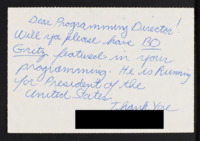 Dear Programming Director!
Will ya please have BO
Gritz featured in your
programming. He is Running
for President of the
United States
Thank You